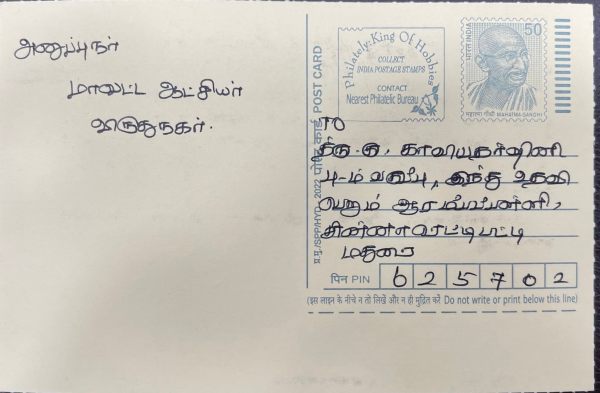 அனுப்புநர்
மாவட்ட ஆட்சியர்
விருதுநகர்.
Philately: King Of Hobbies
COLLECT
INDIA POSTAGE STAMPS
CONTACT
Nearest Philatelic Bureau
भारत INDIA
50
महात्मा गाँधी MAHATMA GANDHI
प्र.मु./SPP/HYD. 2022 पोस्ट कार्ड POST CARD
TO
கு. காவியதர்ஷினி
வகுப்பு, இந்து உதவி
பெறும் ஆரம்பப்பள்ளி,
சின்னரெட்டிபட்டி
மதுரை
पिन PIN 625702
(इस लाइन के नीचे न तो लिखें और न ही मुद्रित करें Do not write or print below this line)